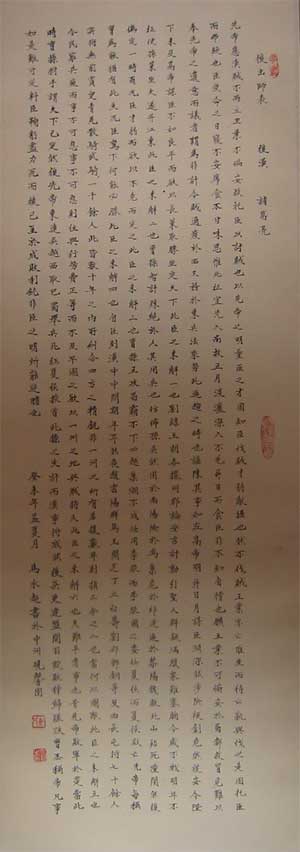 後出師表 後漢 諸葛亮
先帝慮漢賊不兩立王業不偏安故託臣以討賊也以先帝之明量臣之才固知臣伐賊才弱敵彊也然不伐賊王業亦亡惟坐而待亡孰與伐之是故託臣
而弗疑也臣受命之日寢不安席食不甘味思惟北征宜先入南故五月渡瀘深入不毛并日而食臣非不自惜也顧王業不可偏安於蜀都故冒危難以
奉先帝之遺意而議者謂為非計今賊適疲於西又務於東兵法乘勞此進趨之時也謹陳其事如左高帝明並日月謀臣淵深然涉險被創危然後安今陛
下未及高帝謀臣不如良平而欲以長策取勝坐定天下此臣之未解一也劉繇王朗各據州郡論安言計動引聖人群疑滿腹眾難塞胸今歲不戰明年不
征使孫權坐大遂并江東此臣之未解二也曹操智計殊絕於人其用兵也彷彿孫吳然困於南陽險於烏巢危於祁連偪於黎陽幾敗北山殆死潼關然後
偽定一時耳況臣才弱而欲以不危而定之此臣之未解三也曹操五攻昌霸不下四越巢湖不成任用李服而李服圖之委任夏侯而夏侯敗亡先帝每稱
操為能猶有此失況臣駑下何能必勝此臣之未解四也自臣到漢中中間期年耳然喪趙雲陽群馬玉閻芝丁立白壽劉郃鄧銅等及曲長屯將七十餘人
突將無前賨叟青羌散騎武騎一千餘人此皆數十年之內所糾合四方之精銳非一州之所有若復數年則損三分之二也當何以圖敵此臣之未解五也
今民窮兵疲而事不可息事不可息則住與行勞費正等而不及早圖之欲以一州之地與賊持久此臣之未解六也夫難平者事也昔先帝敗軍於楚當此
時曹操拊手謂天下已定然後先帝東連吳越西取巴蜀舉兵北征夏侯授首此操之失計而漢事將成也然後吳更違盟關羽毀敗秭歸蹉跌曹丕稱帝凡事
如是難可逆料臣鞠躬盡力死而後已至於成敗利鈍非臣之明所能逆睹也
癸未年孟夏月 馬永超書於中州